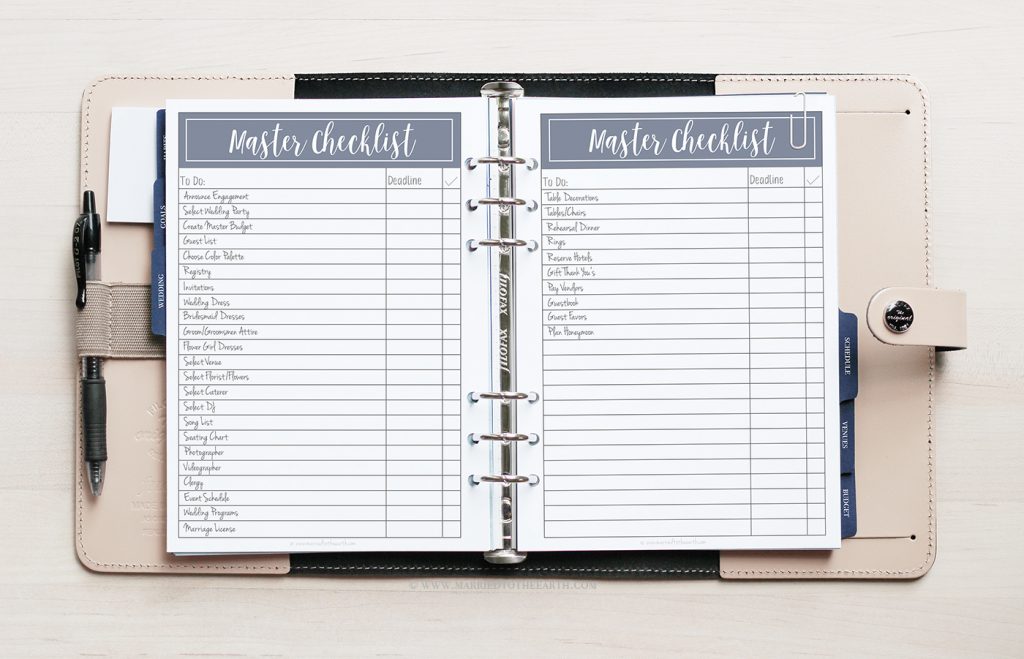 Master Checklist
To Do: Deadline
Announce Engagement
Select Wedding Party
Create Master Budget
Guest List
Choose Color Palette
Registry
Invitations
Wedding Dress
Bridesmaid Dresses
Groom/Groomsmen Attire
Flower Girl Dresses
Select Venue
Select Florist/Flowers
Select Caterer
Select DJ
Song List
Seating Chart
Photographer
Videographer
Clergy
Event Schedule
Wedding Programs
Marriage License
© www.marriedtotheearth.com
Master Checklist
To Do: Deadline
Table Decorations
Tables/Chairs
Rehearsal Dinner
Rings
Reserve Hotels
Gift Thank You's
Pay Vendors
Guestbook
Guest Favors
Plan Honeymoon
© www.marriedtotheearth.com
GOALS
WEDDING
SCHEDULE
VENUES
BUDGET
FILOFAX
FILOFAX
The
original
© WWW.MARRIEDTOTHEEARTH.COM